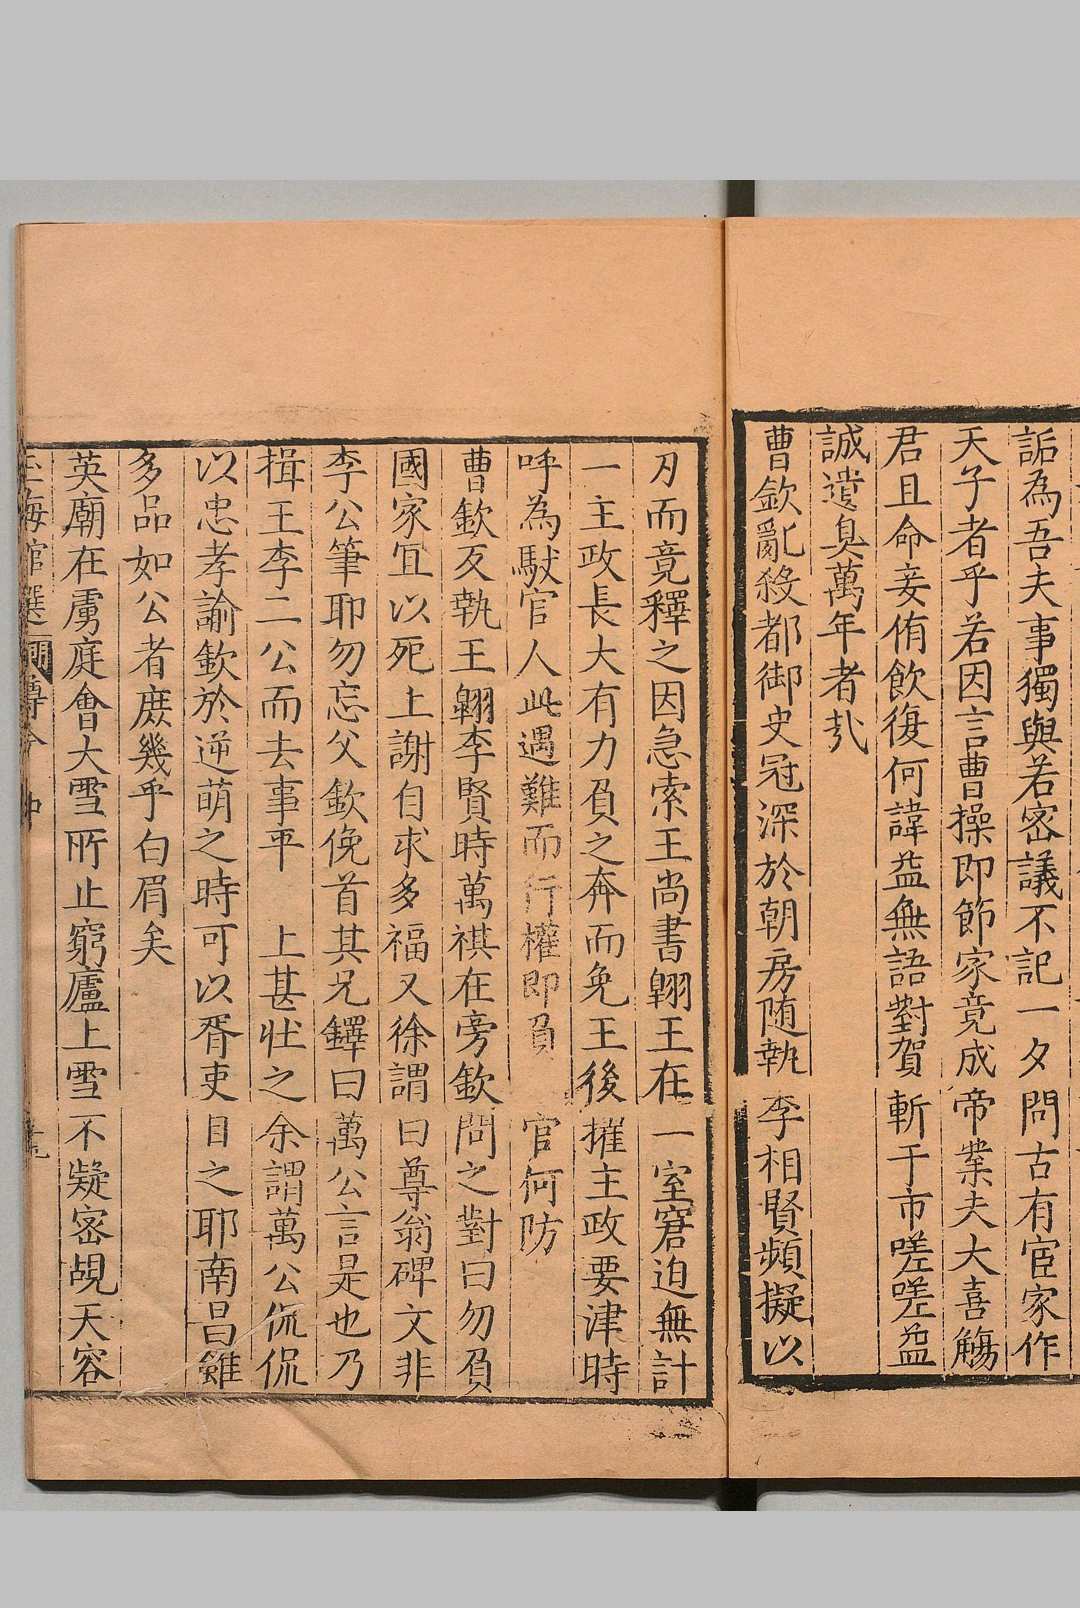 詬為吾夫事獨與若密議不記一夕問古有宦家作
天子者乎若因言曹操即節家竟成帝業夫大喜觴
君且命妾侑飲復何諱益無語對賀斬于市嗟嗟益
誠遺臭萬年者㢤
曹欽亂殺都御史冠深於朝房随執李相賢頻擬以
刃而竟釋之因急索王尚書翺王在一室窘迫無計
一主政長大有力負之奔而免王後擢主政要津時
呼為馱官人此遇難而行權即負官何防
曹欽反執王翺李賢時萬祺在旁欽問之對曰勿負
國家冝以死上謝自求多福又徐謂曰尊翁碑文非
李公筆耶勿忘父欽俛首其兄鐸曰萬公言是也乃
揖王李二公而去事平　上甚壯之余謂萬公侃侃
以忠孝諭欽於逆萌之時可以胥吏目之耶南昌雖
多品如公者庶幾乎白眉矣
英廟在虜庭會大雪所止窮廬上雪不凝密覘天容